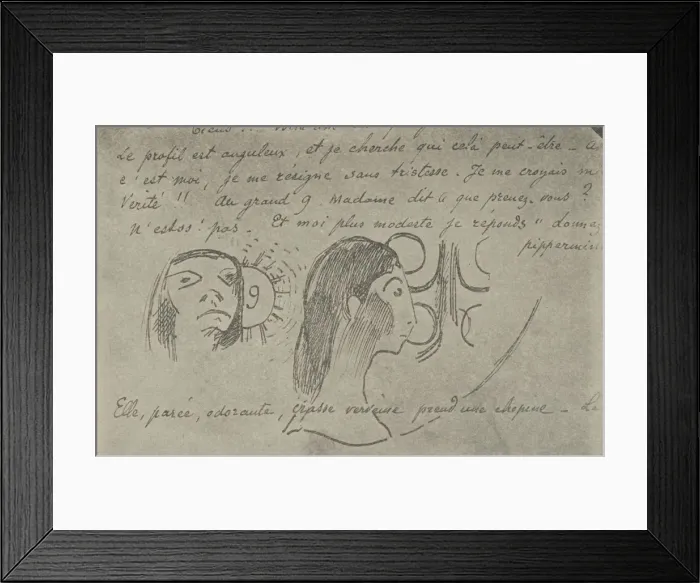 Le profil est anguleux, et je cherche qui celà peut-être - 
c'est moi, je me résigne sans tristesse. Je me croyais m
Verité !! Au grand 9 Madame dit "que prenez-vous?
N'est pas. Et moi plus modeste je réponds "donnez
pippermin
9
Elle, parée, odorante, grasse verveuse prend une chopine - Le